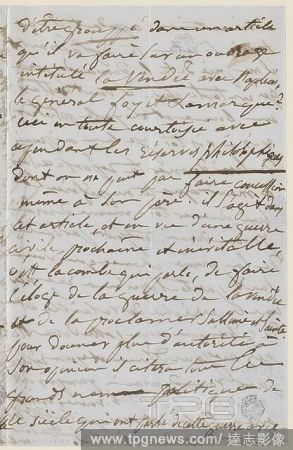 d'être groupé dans un article
qu'il va faire sur un ouvrage
intitulé la Vendée
le général foy et Lamarque?
ceci en toute courtoisie avec
cependant les réserves philosophiques
dont on ne peut pas faire concession
même à son père: il s'agit dans
cet article, et en vue d'une guerre
civile prochaine et inévitable
de faire
l'éloge de la guerre de la Vendée
et de la proclamer sublime et sainte
pour donner plus d'autorité à
son opinion il citera tous les
grands noms politiques de
le siècle qui ont parlé de cette guerre
TPG
www.tpgnews.com / 達志影像